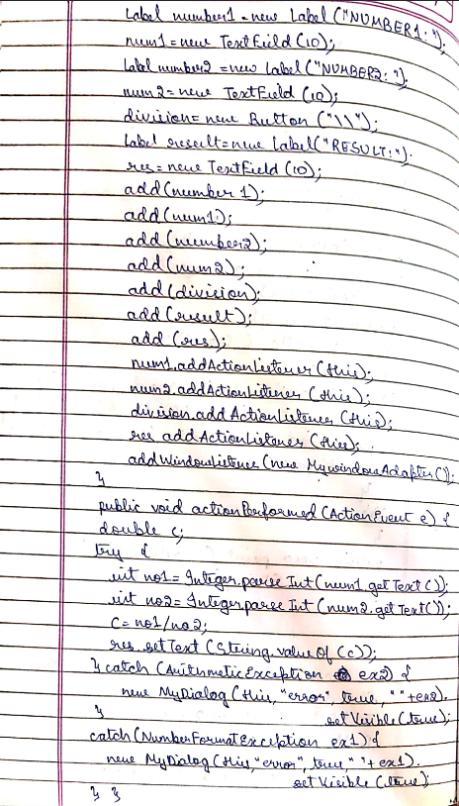 Label number1 = new Label ("NUMBER1: ");
num1 = new TextField (10);
Label number2 = new Label ("NUMBER2: ");
num2 = new TextField (10);
division = new Button ("\\");
Label result = new Label ("RESULT: ");
res = new TextField (10);
add (number 1);
add (num1);
add (number2);
add (num2);
add (division);
add (result);
add (res);
num1.addActionListener (this);
num2.addActionListener (this);
division.add ActionListener (this);
res addActionListener (this);
addWindowListener (new MywindowAdapter ());
}
public void actionPerformed (ActionEvent e) {
double c;
try {
int no1 = Integer.parse Int (num1.getText ());
int no2 = Integer.parse Int (num2.getText ());
C = no1/no2;
res.setText (String.valueOf (c));
} catch (ArithmeticException ex2) {
new MyDialog (this, "error", true, " " +ex2).
} setVisible (true);
catch (NumberFormatException ex1) {
new MyDialog (this, "error", true, " " + ex1).
setVisible (true)
} }